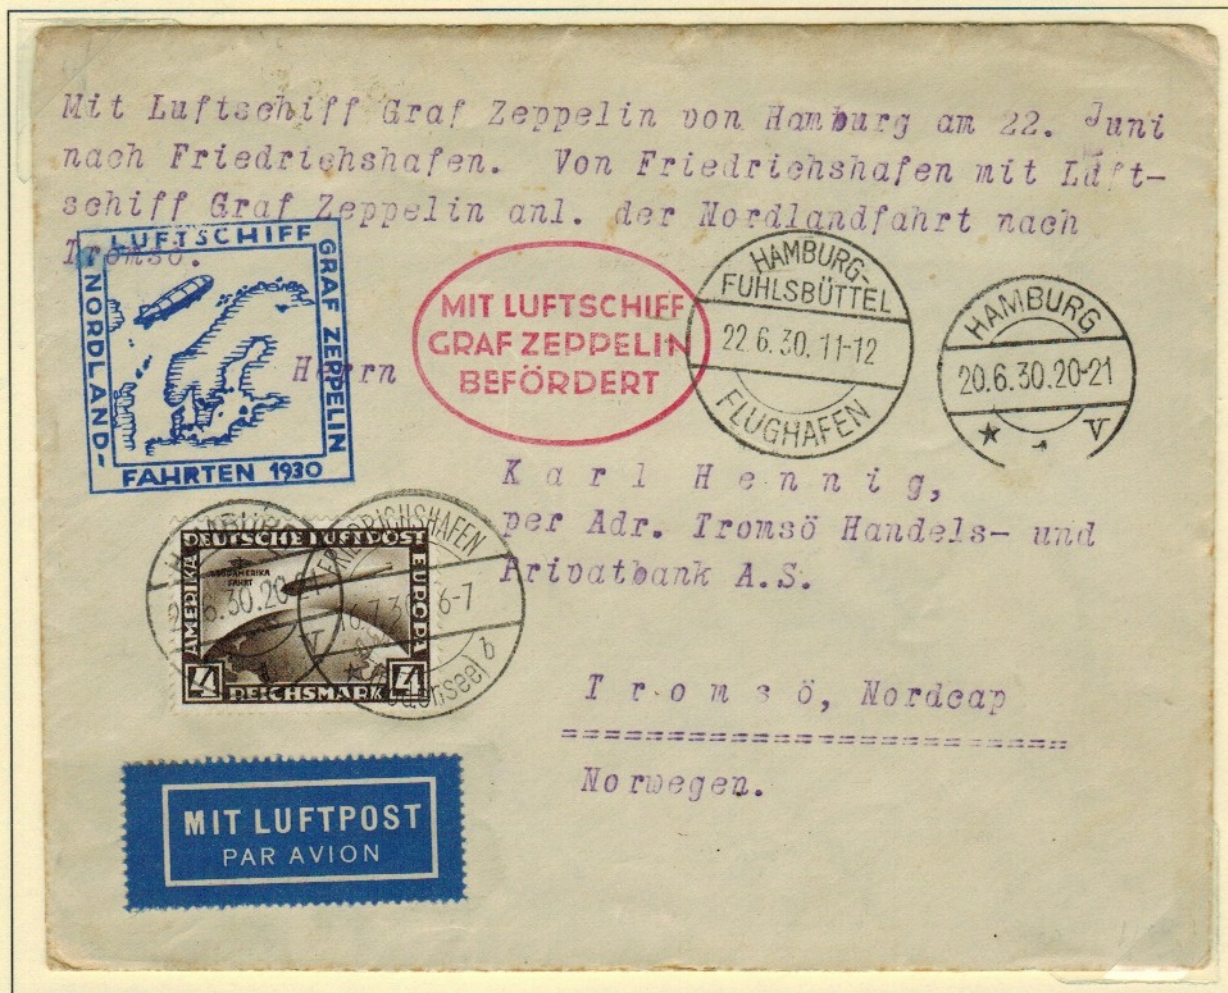 Mit Luftschiff Graf Zeppelin von Hamburg am 22. Juni
nach Friedrichshafen. Von Friedrichshafen mit Luft-
schiff Graf Zeppelin anl. der Nordlandfahrt nach
Tromsö.
LUFTSCHIFF
GRAF ZEPPELIN
NORDLAND-
FAHRTEN 1930
MIT LUFTSCHIFF
GRAF ZEPPELIN
BEFÖRDERT
HAMBURG-
FUHLSBÜTTEL
22.6.30.11-12
FLUGHAFEN
HAMBURG
20.6.30.20-21
* 1 V
Herrn
Karl Hennig,
per Adr. Tromsö Handels- und
Privatbank A.S.
Tromsö, Nordcap
Norwegen.
HAMBURG
6.30.20-21
V
FRIEDRICHSHAFEN
6-7
(Bodensee) b
DEUTSCHE LUFTPOST
AMERIKA
EUROPA
SÜDAMERIKA
FAHRT
4
REICHSMARK
4
MIT LUFTPOST
PAR AVION